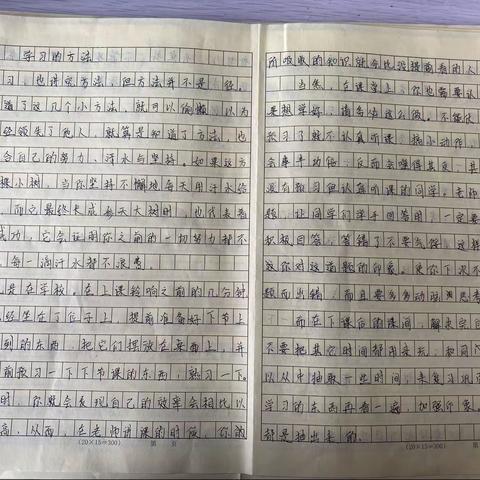 学习的方法
习,也讲究方法,但方法并不是
道了这几个小方法,就可以偷懒,以为
经领先了他人,就算是知道了方法,也
合自己的努力、汗水与坚持。如果这方
棵小树,当你坚持不懈地每天用汗水给
,而它最终长成参天大树时,也代表着
成功,它会证明你之前的一切努力都不
,每一滴汗水都不浪费。
是在学校。在上课铃响之前的几分钟
经坐在了位子上,提前准备好下节上
到的东西,把它们摆放在桌面上,并
前预习一下下节课的东西,熟习一下。
时,你就会发现自己的效率会相比以
高,从而,在老师讲课的时候,你
(20×15=300) 第 页
所吸收的知识就会比没提前看的人
当然,在课堂上,你也需要认
要想学好,请务必这么做。不能仗
预习了就不认真听课,搞小动作,
会事半功倍,反而会
没有预习但认真听课的同学。老师
题,让同学们举手回答时,一定要
积极回答,答错了不要气馁,这样
这你对这道题的印象。使你下次不
题而出错,而且要多多动脑思考
而在下课后的课间,解决完
不要把其它时间都用来玩,和同
以从中抽取一些时间,来复习巩
学习的东西再看一遍,加强印象。
都是抽出来的。
(20×15=300) 第